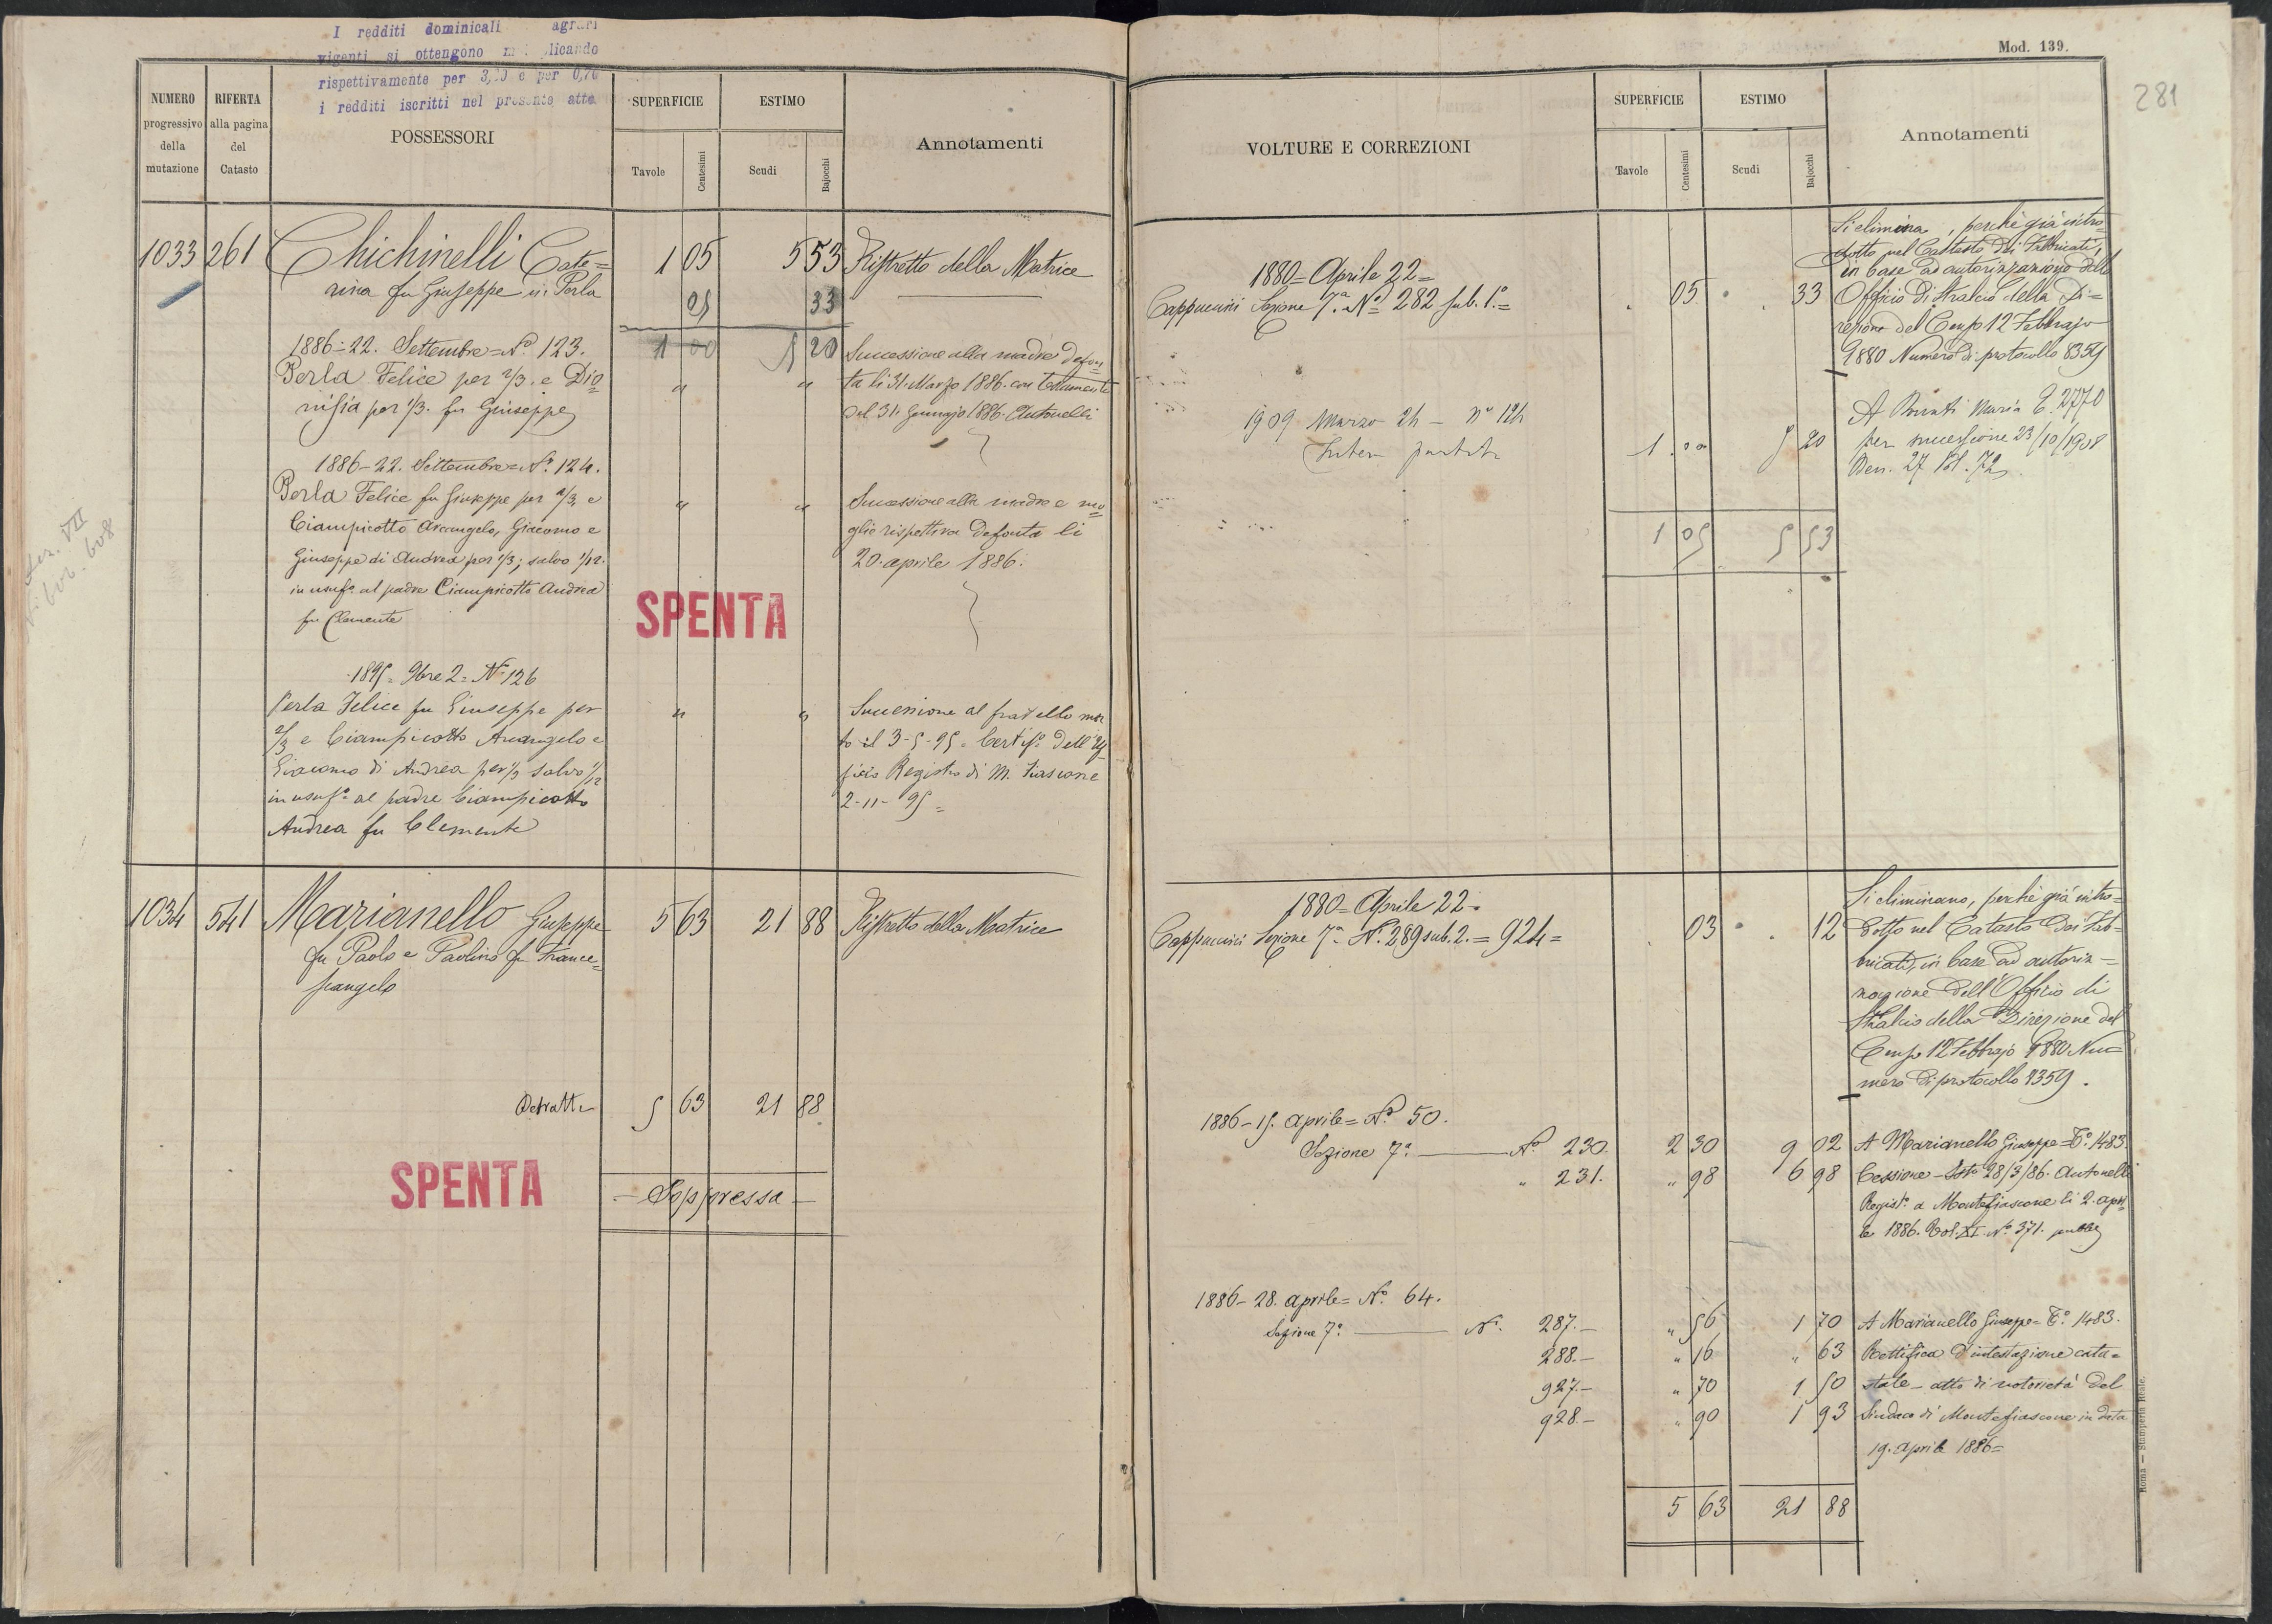 I redditi dominicali agrari
vigenti si ottengono
rispettivamente per e per 0,70
i redditi iscritti nel presente atto
NUMERO
progressivo
della
mutazione
RIFERTA
alla pagina
del
Catasto
POSSESSORI
SUPERFICIE
Tavole
Centesimi
ESTIMO
Scudi
Bajocchi
Annotamenti
1033 261 Chichinelli Cate= 1 05 5 53 Ristretto della Matrice
rina fu Giuseppe in Perla 05 33
1886=22. Settembre=N.º 123. 1 00 5 20 Successione alla madre defon
Perla Felice per 2/3. e Dio " " ta li 31. Marzo 1886. con testamento
nisia per 1/3. fu Giuseppe del 31. Gennajo 1886. Antonelli
1886-22. Settembre=Nº. 124.
Perla Felice fu Giuseppe per 2/3 e " " Successione alla madre e mo
Ciampicotto Arcangelo, Giacomo e glie rispettiva defonta li
Giuseppe di Andrea per 1/3; salvo 1/12. 20. aprile 1886.
in usufº al padre Ciampicotto Andrea
fu Clemente
SPENTA
1895= 9bre 2= Nº 126
Perla Felice fu Giuseppe per " " Successione al fratello mor
2/3 e Ciampicotto Arcangelo e to il 3-5-95= Certifº. dell'Uf
Giacomo di Andrea per 1/3 salvo 1/12 ficio Registro di M. fiascone
in usufº al padre Ciampicotto 2-11-95=
Andrea fu Clemente
1034 541 Marianello Giuseppe 5 63 21 88 Ristretto della Matrice
fu Paolo e Paolino fu France=
scangelo
Detratte 5 63 21 88
SPENTA
- Soppressa -
Mod. 139.
281
VOLTURE E CORREZIONI
SUPERFICIE
Tavole
Centesimi
ESTIMO
Scudi
Bajocchi
Annotamenti
1880= Aprile 22=
Cappuccini Sezione 7.ª Nº 282 sub. 1.º= . 05 . 33
Si elimina, perchè già intro=
dotto nel Catasto dei Fabbricati,
in base ad autorizzazione dello
Officio di Stralcio della Di=
rezione del Censo 12 Febbrajo
1880 Numero di protocollo 8359
1909 Marzo 24 - nº 124
Intera partita 1 . 00 5 20
A Maria C. 2770
per successione 23/10/1908
Den. 27 Vol. 72
1 05 5 53
1880= Aprile 22=
Cappuccini Sezione 7ª Nº. 289 sub. 2.= 924= . 03 . 12
Si eliminano, perchè già intro=
dotto nel Catasto dei Fab=
bricati, in base ad autoriz=
zazione dell'Officio di
Stralcio della Direzione del
Censo 12 Febbrajo 1880 Nu=
mero di protocollo 8359.
1886-15. aprile= Nº. 50.
Sezione 7ª. Nº 230. 2 30 9 02 A Marianello Giuseppe= Cº. 1483.
" 231. " 98 6 98 Cessione - Istº 28/3/86. Antonelli
Registº. a Montefiascone li 2. apri
le 1886. Vol. XI. Nº 371.
1886-28. aprile= Nº. 64.
Sezione 7ª. Nº. 287.- " 56 1 70 A Marianello Giuseppe= Cº. 1483.
288.- " 16 " 63 Rettifica d'intestazione cata=
927.- " 70 1 50 stale - atto di notorietà del
928.- " 90 1 93 Sindaco di Montefiascone in data
19. aprile 1886=
5 63 21 88
Roma — Stamperia Reale.